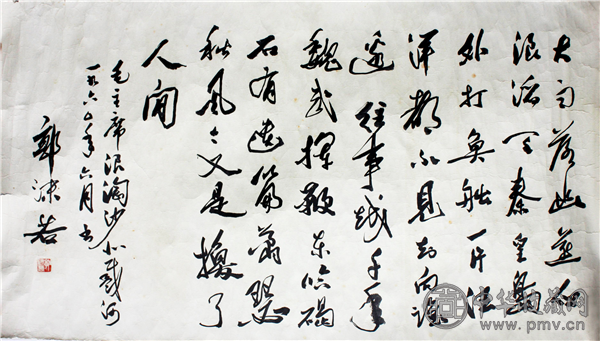 大雨落幽燕白
浪滔天秦皇島
外打魚船一片汪
洋都不見知向誰
邊往事越千年
魏武揮鞭東臨碣
石有遺篇蕭瑟
秋風今又是換了
人間
毛主席浪淘沙北戴河
一九六五年六月書
郭沫若
中华收藏网
www.pmv.cn